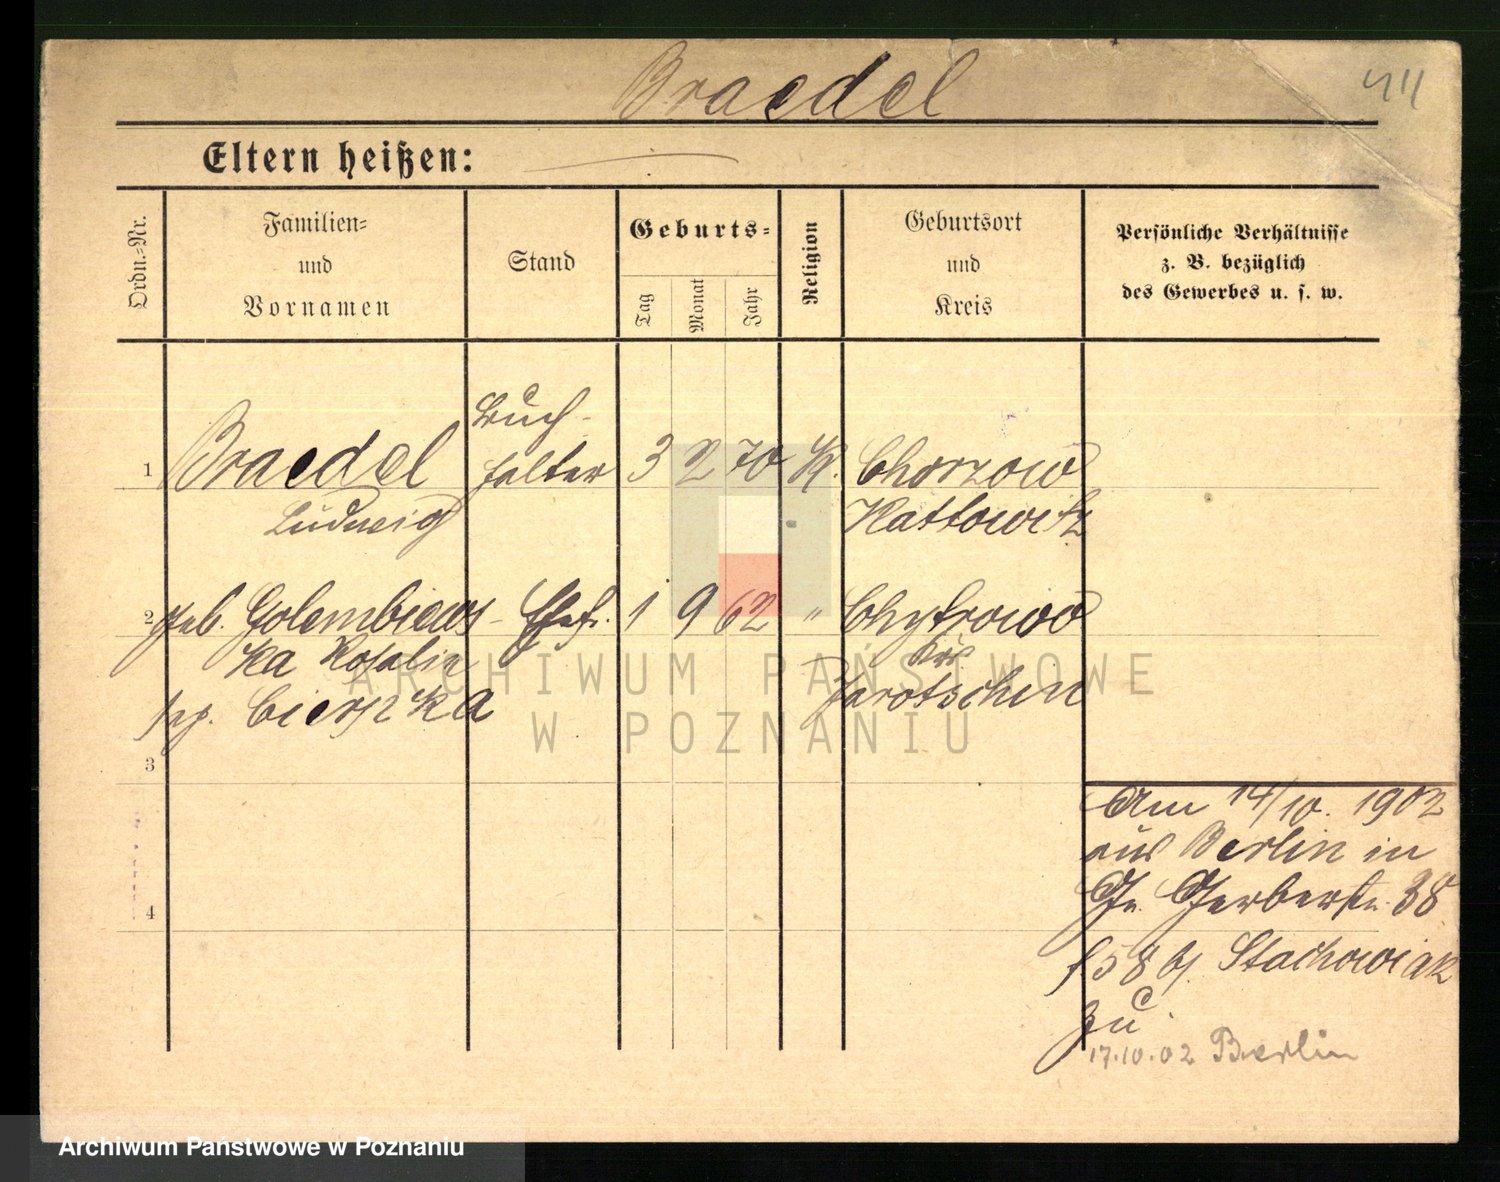 Braedel
Eltern heißen:
Ordn.=Nr.
Familien=
und
Vornamen
Stand
Geburts=
Tag
Monat
Jahr
Religion
Geburtsort
und
Kreis
Persönliche Verhältnisse
z. B. bezüglich
des Gewerbes u. s. w.
Buch-
1 Braedel halter 3 2 70 K. Chorzow
Ludwig Kattowitz
2 geb. Golembiews- Ehefr. 1 9 62 " Chytrowo
ka Rosalie Krs
sep. Cierpka Jarotschin
3
4
Am 14/10. 1902
aus Berlin in
Gr. Gerberstr. 38
b/ Stachowiak
zu.
17.10.02 Berlin
ARCHIWUM PAŃSTWOWE
W POZNANIU
Archiwum Państwowe w Poznaniu